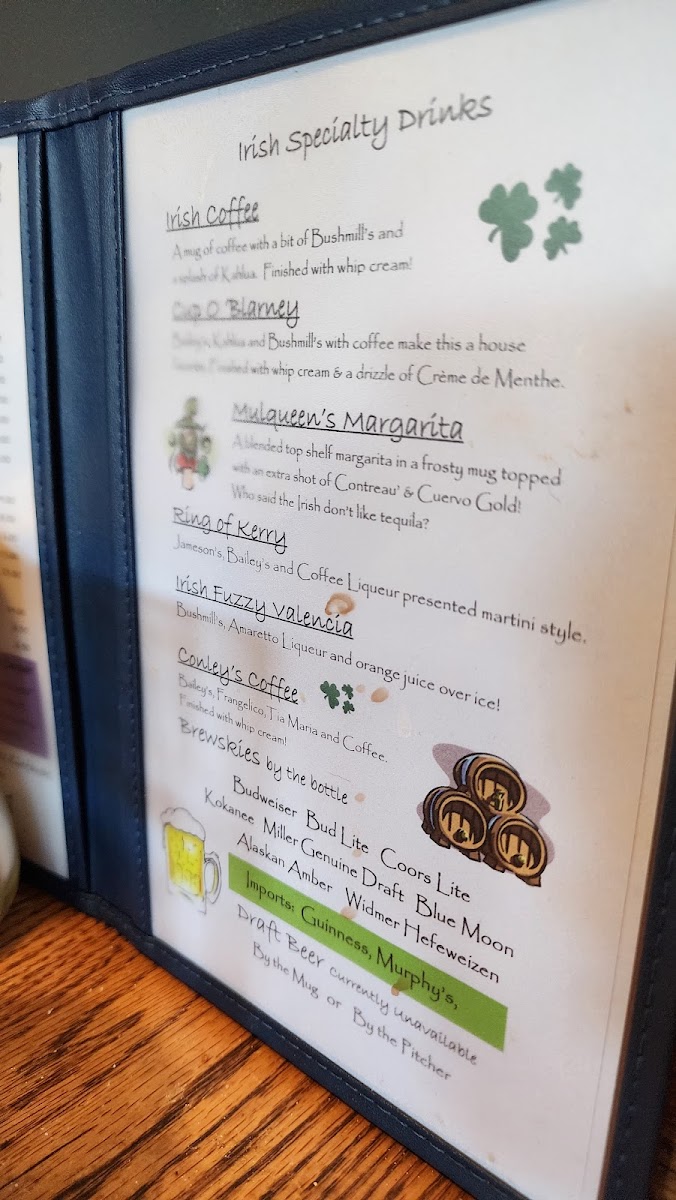 Irish Specialty Drinks
Irish Coffee
A mug of coffee with a bit of Bushmill's and
a splash of Kahlua. Finished with whip cream!
Cup O' Blarney
Bailey's, Kahlua and Bushmill's with coffee make this a house
favorite. Finished with whip cream & a drizzle of Crème de Menthe.
Mulqueen's Margarita
A blended top shelf margarita in a frosty mug topped
with an extra shot of Contreau' & Cuervo Gold!
Who said the Irish don't like tequila?
Ring of Kerry
Jameson's, Bailey's and Coffee Liqueur presented martini style.
Irish Fuzzy Valencia
Bushmill's, Amaretto Liqueur and orange juice over ice!
Conley's Coffee
Bailey's, Frangelico, Tia Maria and Coffee.
Finished with whip cream!
Brewskies by the bottle
Budweiser Bud Lite Coors Lite
Kokanee Miller Genuine Draft Blue Moon
Alaskan Amber Widmer Hefeweizen
Imports: Guinness, Murphy's,
Draft Beer currently unavailable
By the Mug or By the Pitcher